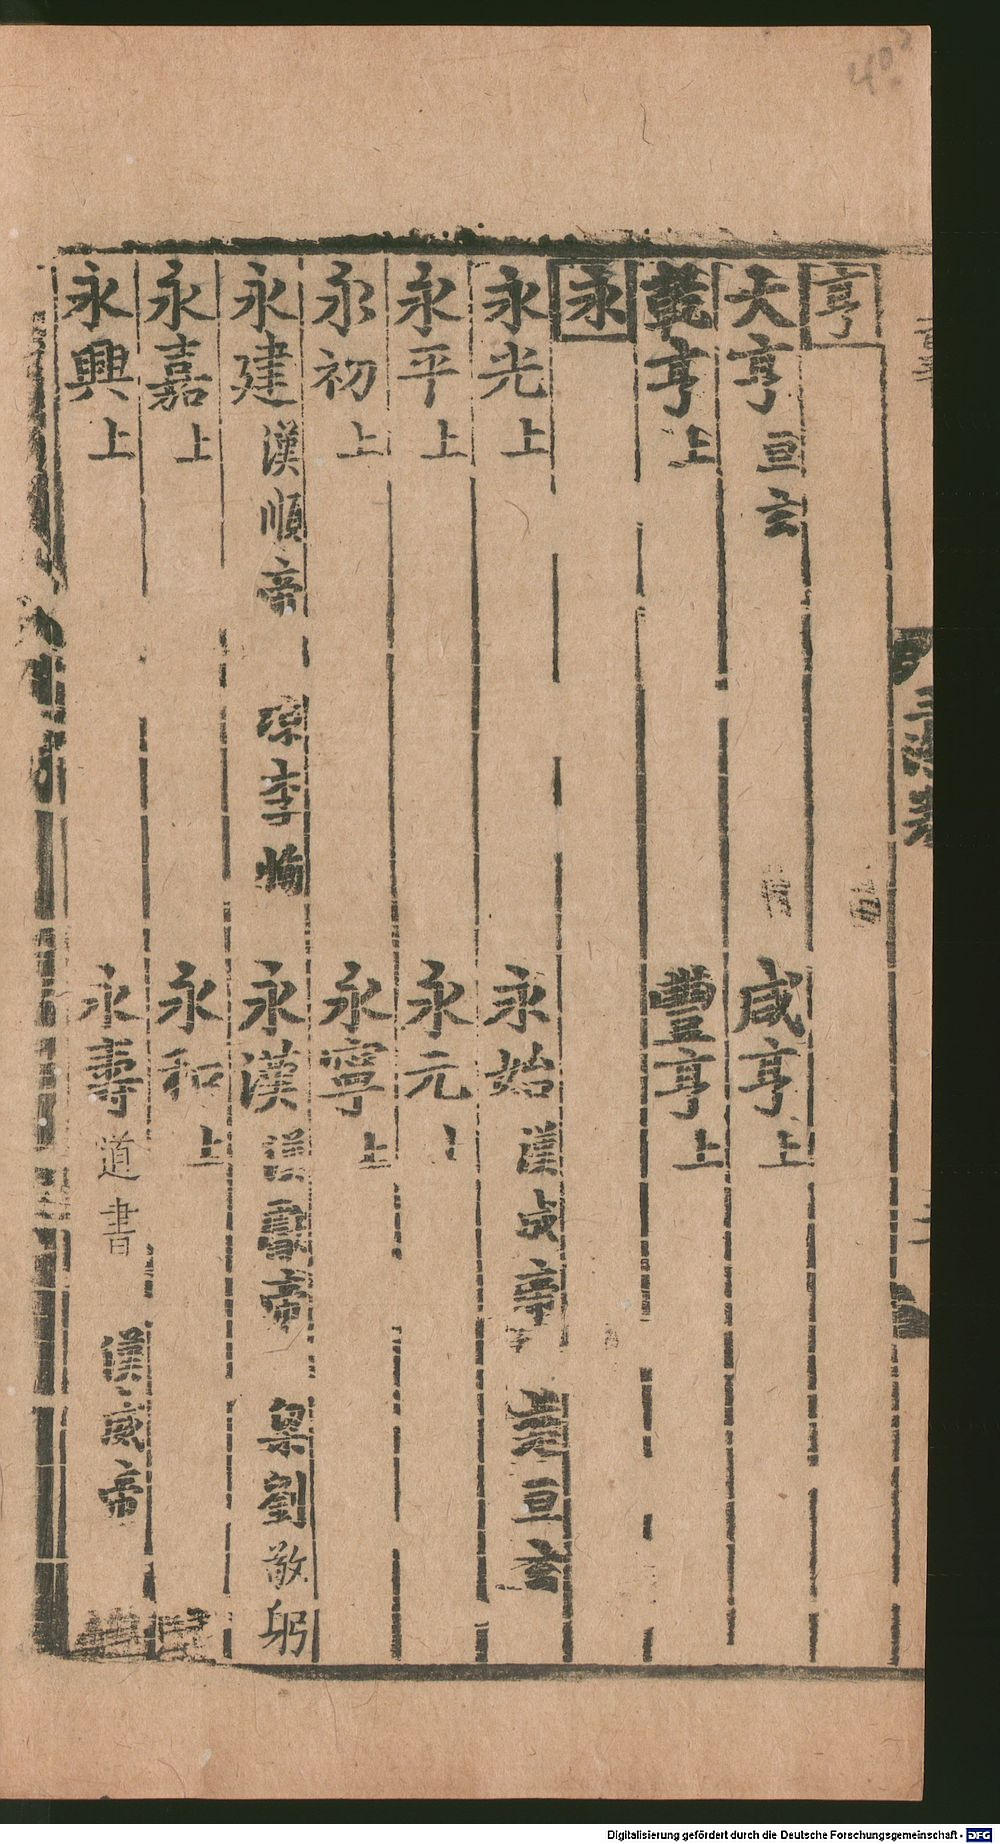 亨
天亨 亘玄 咸亨 上
乾亨 上 豐亨 上
永
永光 上 永始 漢成帝 亘玄
永平 上 永元
永初 上 永寧 上
永建 漢順帝 凉李恂 永漢 漢獻帝 梁劉敬躬
永嘉 上 永和 上
永興 上 永壽 道書 漢威帝
40
Digitalisierung gefördert durch die Deutsche Forschungsgemeinschaft - DFG